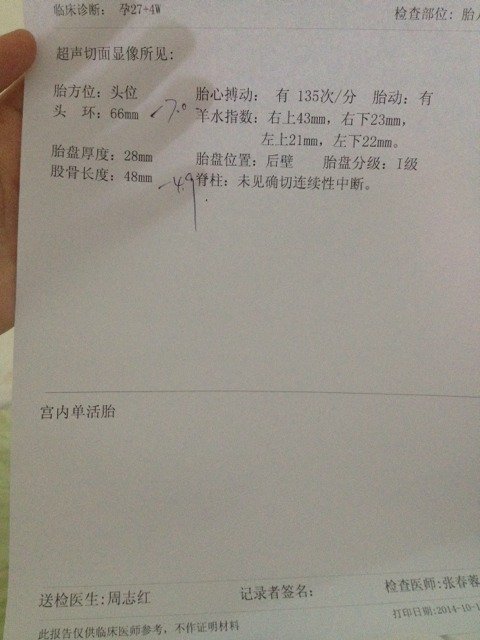 临床诊断: 孕27+4W 检查部位: 胎
超声切面显像所见:
胎方位: 头位 胎心搏动: 有 135次/分 胎动: 有
头 环: 66mm -7.0 羊水指数: 右上43mm, 右下23mm,
左上21mm, 左下22mm。
胎盘厚度: 28mm 胎盘位置: 后壁 胎盘分级: I级
股骨长度: 48mm -4.9 脊柱: 未见确切连续性中断。
宫内单活胎
送检医生:周志红 记录者签名: 检查医师:张春蓉
打印日期:2014-10-1
此报告仅供临床医师参考, 不作证明材料